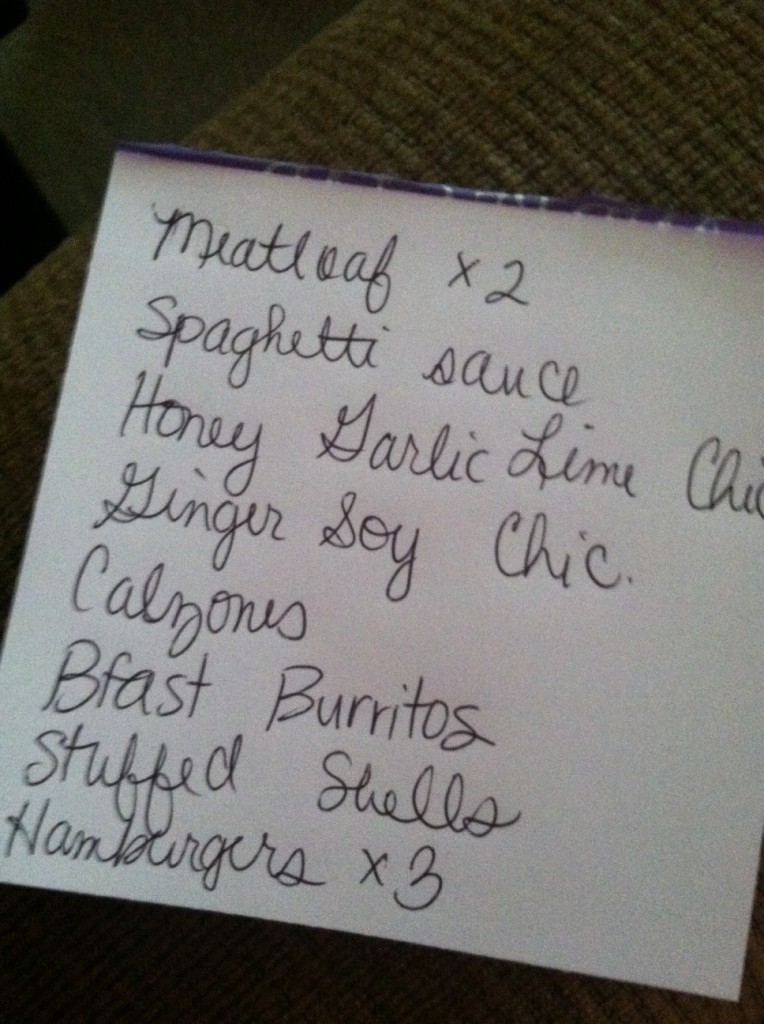 Meatloaf x2
Spaghetti sauce
Honey Garlic Lime Chic
Ginger Soy Chic.
Calzones
Bfast Burritos
Stuffed Shells
Hamburgers x3